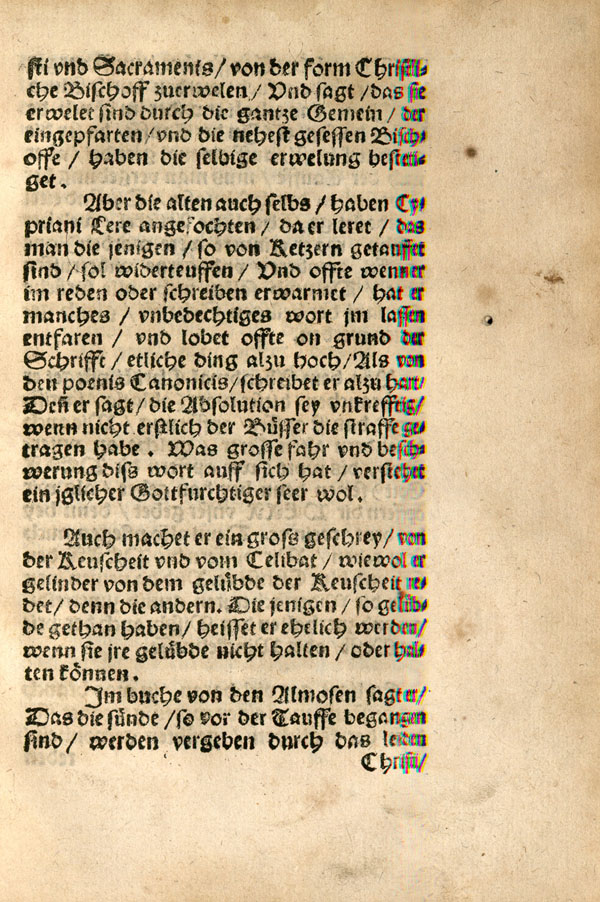 sti vnd Sacraments / von der form Christli-
che Bischoff zuerwelen / Vnd sagt / das sie
erwelet sind durch die gantze Gemein / der
eingepfarten / vnd die nehest gesessen Bisch-
offe / haben die selbige erwelung besteti-
get.
Aber die alten auch selbs / haben Cy-
priani Lere angefochten / da er leret / das
man die jenigen / so von Ketzern getauffet
sind / sol widerteuffen / Vnd offte wenner
im reden oder schreiben erwarmet / hat er
manches / vnbedechtiges wort jm lassen
entfaren / vnd lobet offte on grund der
Schrifft / etliche ding alzu hoch / Als von
den poenis Canonicis / schreibet er alzu hart /
Deñ er sagt / die Absolution sey vnkrefftig /
wenn nicht erstlich der Büsser die straffe ge-
tragen habe . Was grosse fahr vnd besch-
werung diss wort auff sich hat / verstehet
ein jglicher Gottfurchtiger seer wol .
Auch machet er ein gross geschrey / von
der Keuscheit vnd vom Celibat / wiewol er
gelinder von dem gelübde der Keuscheit re-
det / denn die andern. Die jenigen / so gelüb-
de gethan haben / heisset er ehelich werden /
wenn sie jre gelübde nicht halten / oder hal-
ten können .
Im buche von den Almosen sagt er /
Das die sünde / so vor der Tauffe begangen
sind / werden vergeben durch das leiden
Christi /